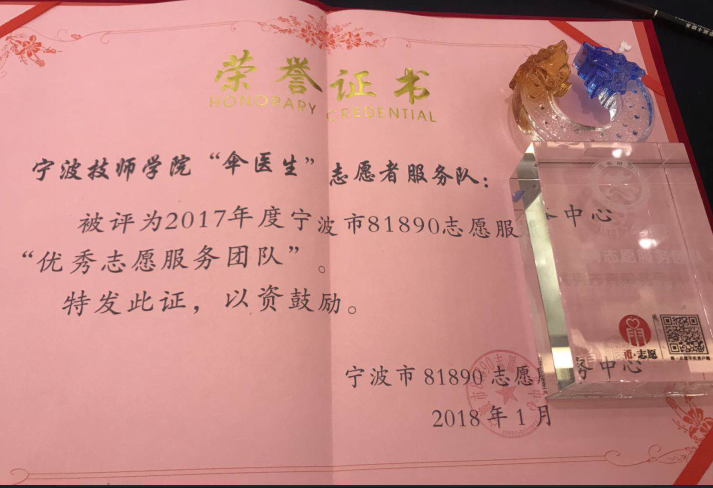 荣誉证书
HONORARY CREDENTIAL
宁波技师学院“伞医生”志愿者服务队：
被评为2017年度宁波市81890志愿服务中心
“优秀志愿服务团队”。
特发此证，以资鼓励。
宁波市 81890 志愿服务中心
2018 年 1 月
志愿服务
甬·志愿